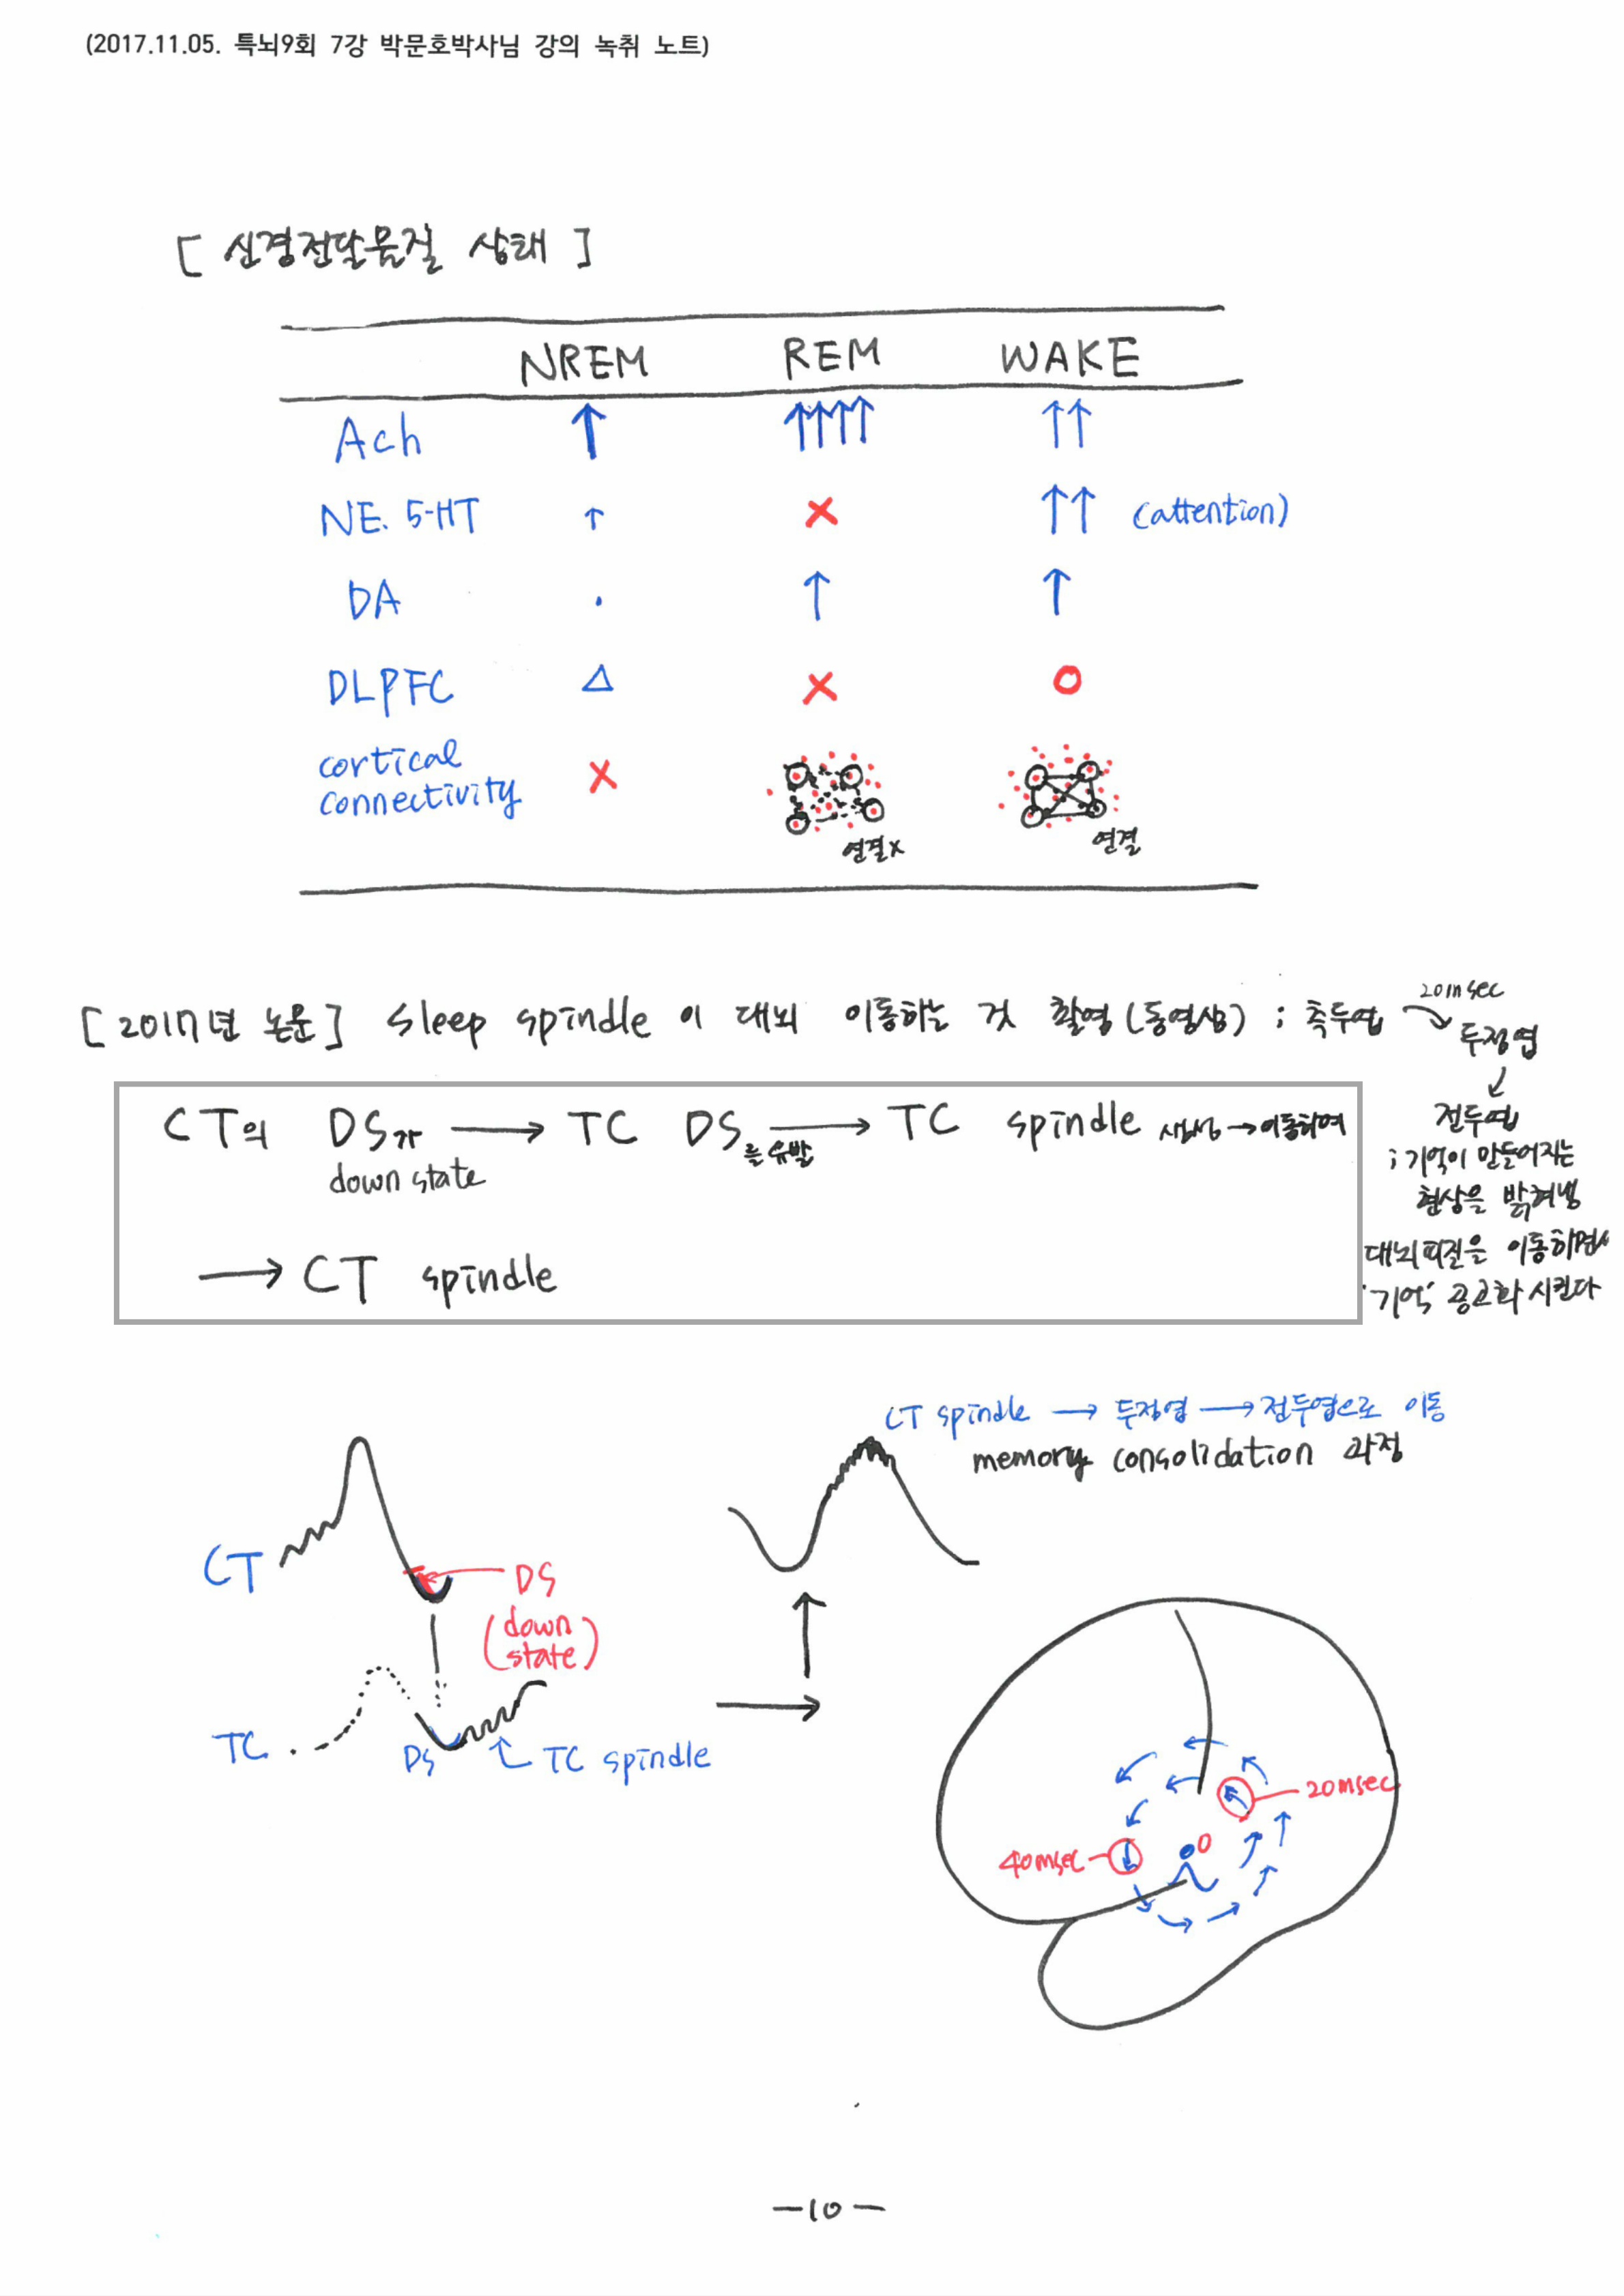 (2017.11.05. 특뇌9회 7강 박문호박사님 강의 녹취 노트)
[ 신경전달물질 상태 ]
NREM REM WAKE
Ach ↑ ↑↑↑↑ ↑↑
NE. 5-HT ↑ × ↑↑ (attention)
DA · ↑ ↑
DLPFC △ × ○
cortical connectivity ×
연결× 연결
[2017년 논문] sleep spindle 이 대뇌 이동하는 것 촬영(동영상) ; 측두엽
20msec
두정엽
↓
전두엽
; 기억이 만들어지는
현상을 밝혀냄
대뇌피질을 이동하면서
'기억' 공고화 시킨다
CT의 DS가 → TC DS를 유발 → TC spindle 생성 → 이동하여
down state
→ CT spindle
CT spindle → 두정엽 → 전두엽으로 이동
memory consolidation 과정
CT
DS
(down state)
TC
DS
TC spindle
20msec
40msec
0
-10-